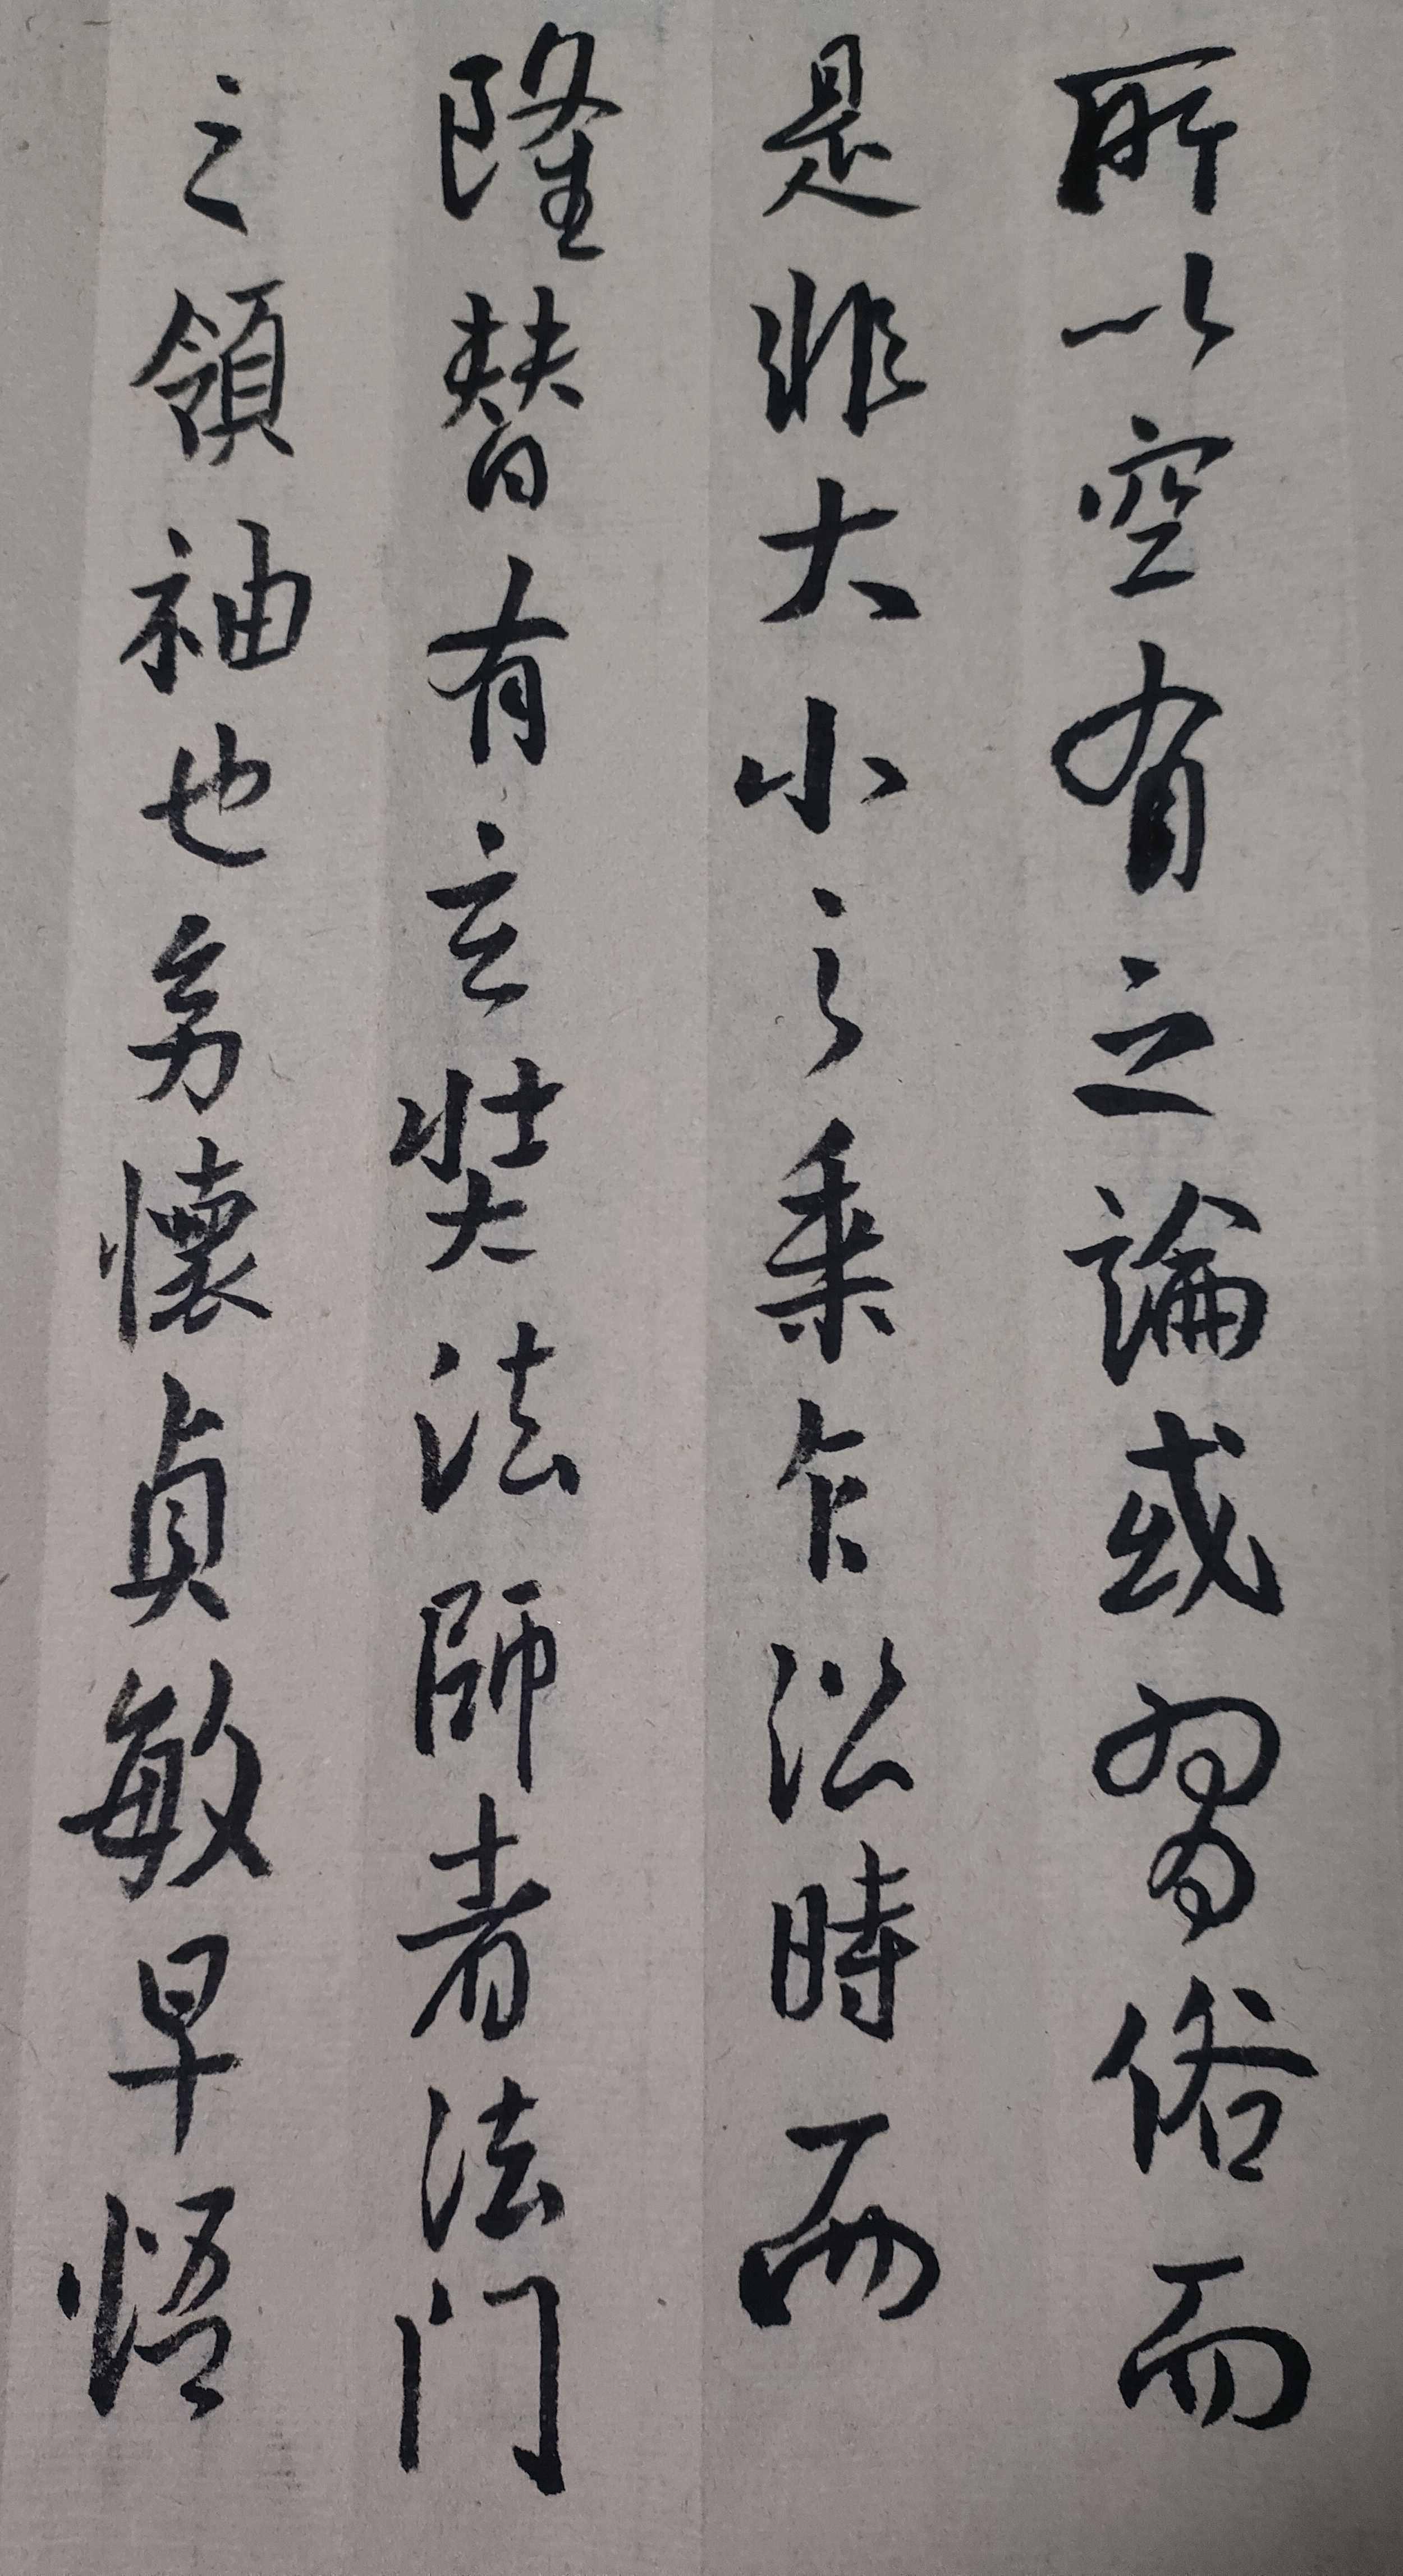 所以空有之論或習俗而
是非大小之乗乍㳂時而
隆替有玄奘法師者法門
之領袖也㓜懷貞敏早悟